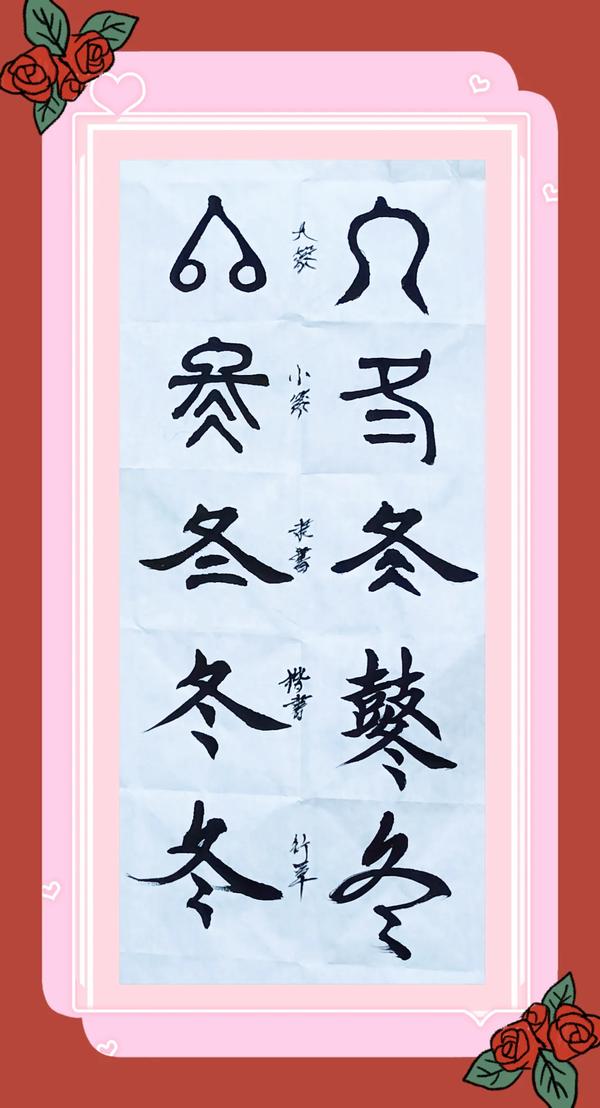 冬冬冬鼕冬
大篆
小篆
隶書
楷書
行草
冬冬冬冬冬